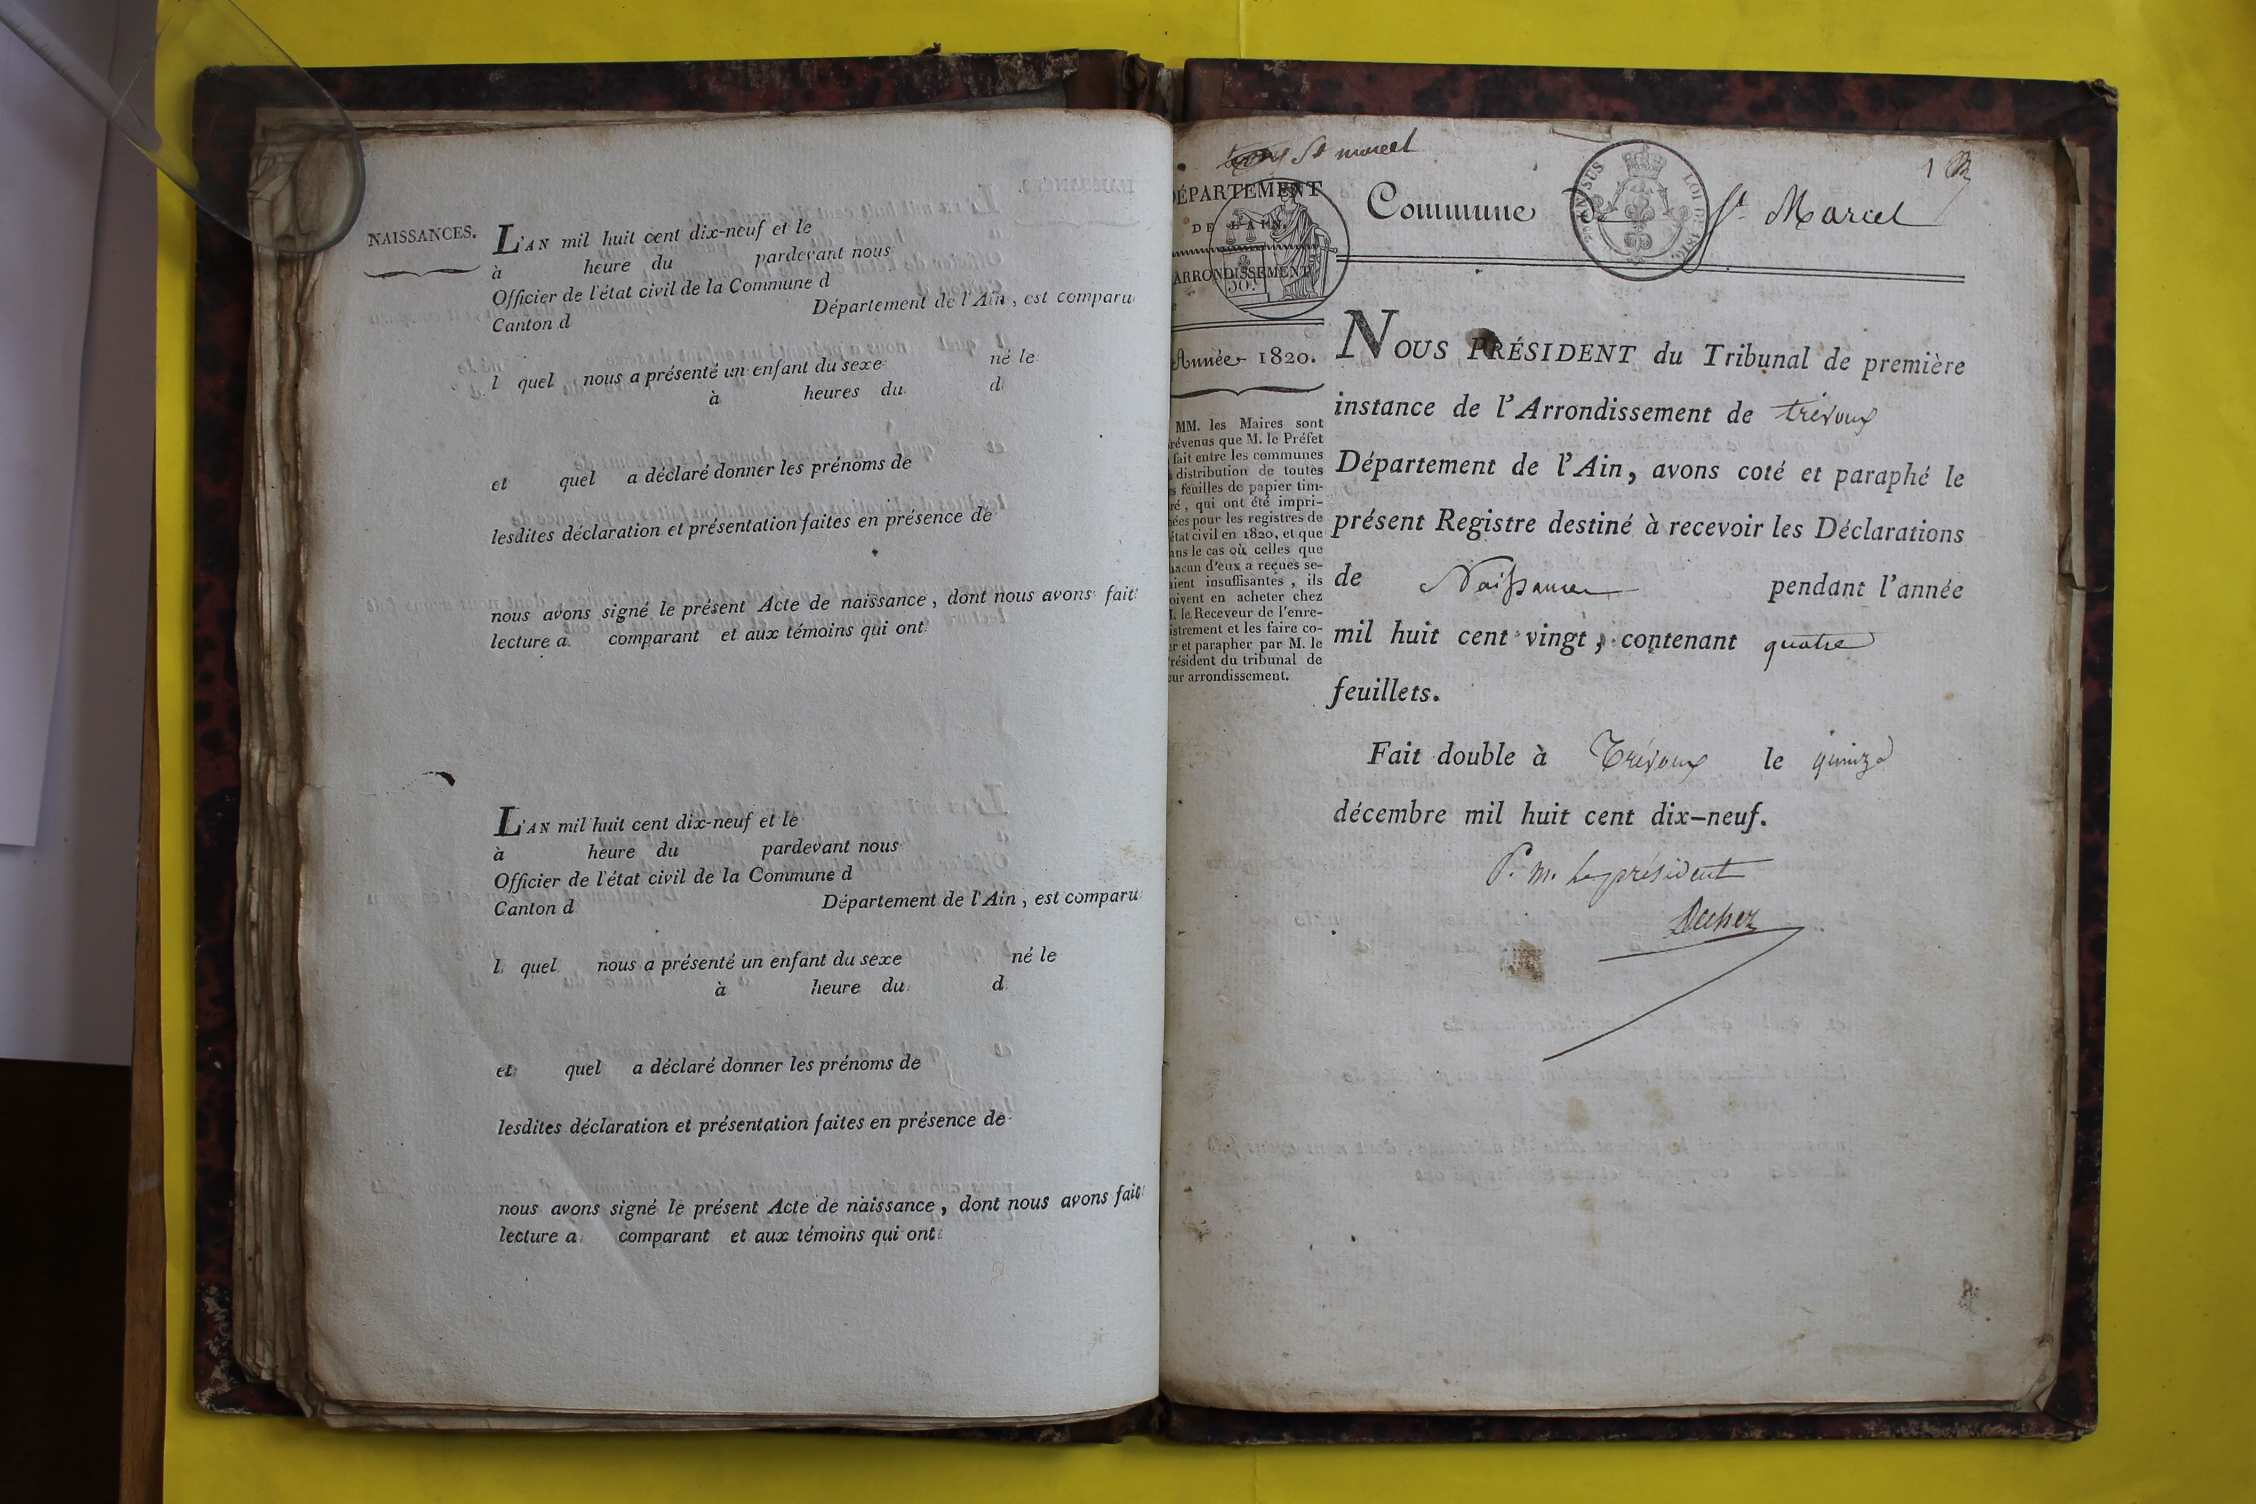 NAISSANCES.
L'AN mil huit cent dix-neuf et le
à heure du pardevant nous
Officier de l'état civil de la Commune d
Canton d Département de l'Ain, est comparu
l quel nous a présenté un enfant du sexe né le
à heures du d
et quel a déclaré donner les prénoms de
lesdites déclaration et présentation faites en présence de
nous avons signé le présent Acte de naissance, dont nous avons fait
lecture a comparant et aux témoins qui ont
L'AN mil huit cent dix-neuf et le
à heure du pardevant nous
Officier de l'état civil de la Commune d
Canton d Département de l'Ain, est comparu
l quel nous a présenté un enfant du sexe né le
à heure du d
et quel a déclaré donner les prénoms de
lesdites déclaration et présentation faites en présence de
nous avons signé le présent Acte de naissance, dont nous avons fait
lecture a comparant et aux témoins qui ont
St marcel
DÉPARTEMENT
DE L'AIN.
ARRONDISSEMENT
Année 1820.
MM. les Maires sont
révenus que M. le Préfet
fait entre les communes
distribution de toutes
s feuilles de papier tim-
ré, qui ont été impri-
ées pour les registres de
état civil en 1820, et que
ans le cas où celles que
hacun d'eux a reçues se-
aient insuffisantes, ils
oivent en acheter chez
. le Receveur de l'enre-
istrement et les faire co-
er et parapher par M. le
résident du tribunal de
ur arrondissement.
1
Commune d St Marcel
NOUS PRÉSIDENT du Tribunal de première
instance de l'Arrondissement de trévoux
Département de l'Ain, avons coté et paraphé le
présent Registre destiné à recevoir les Déclarations
de Naissances pendant l'année
mil huit cent vingt, contenant quatre
feuillets.
Fait double à Trévoux le quinze
décembre mil huit cent dix-neuf.
P. m. le président